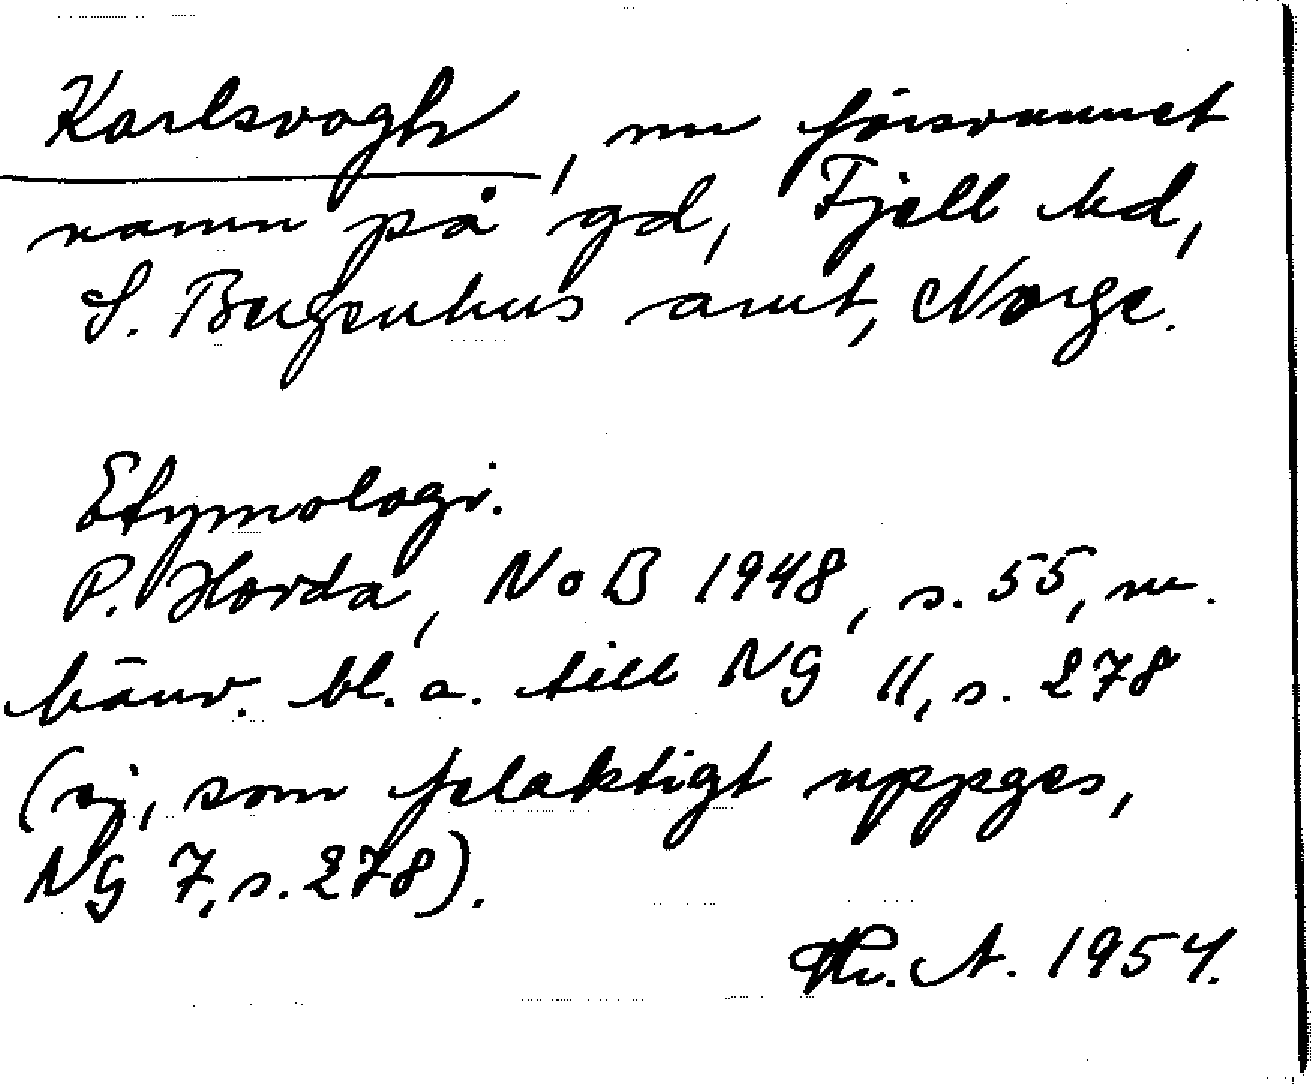 Karlsvagh, nu försvunnet
namn på gd, Fjell hd,
S. Bergenhus amt, Norge.
Etymologi.
P. Horda, NoB 1948, s. 55, m.
hänv. bl. a. till NG 11, s. 278
(ej, som felaktigt uppges,
NG 7, s. 278).
Th. A. 1954.